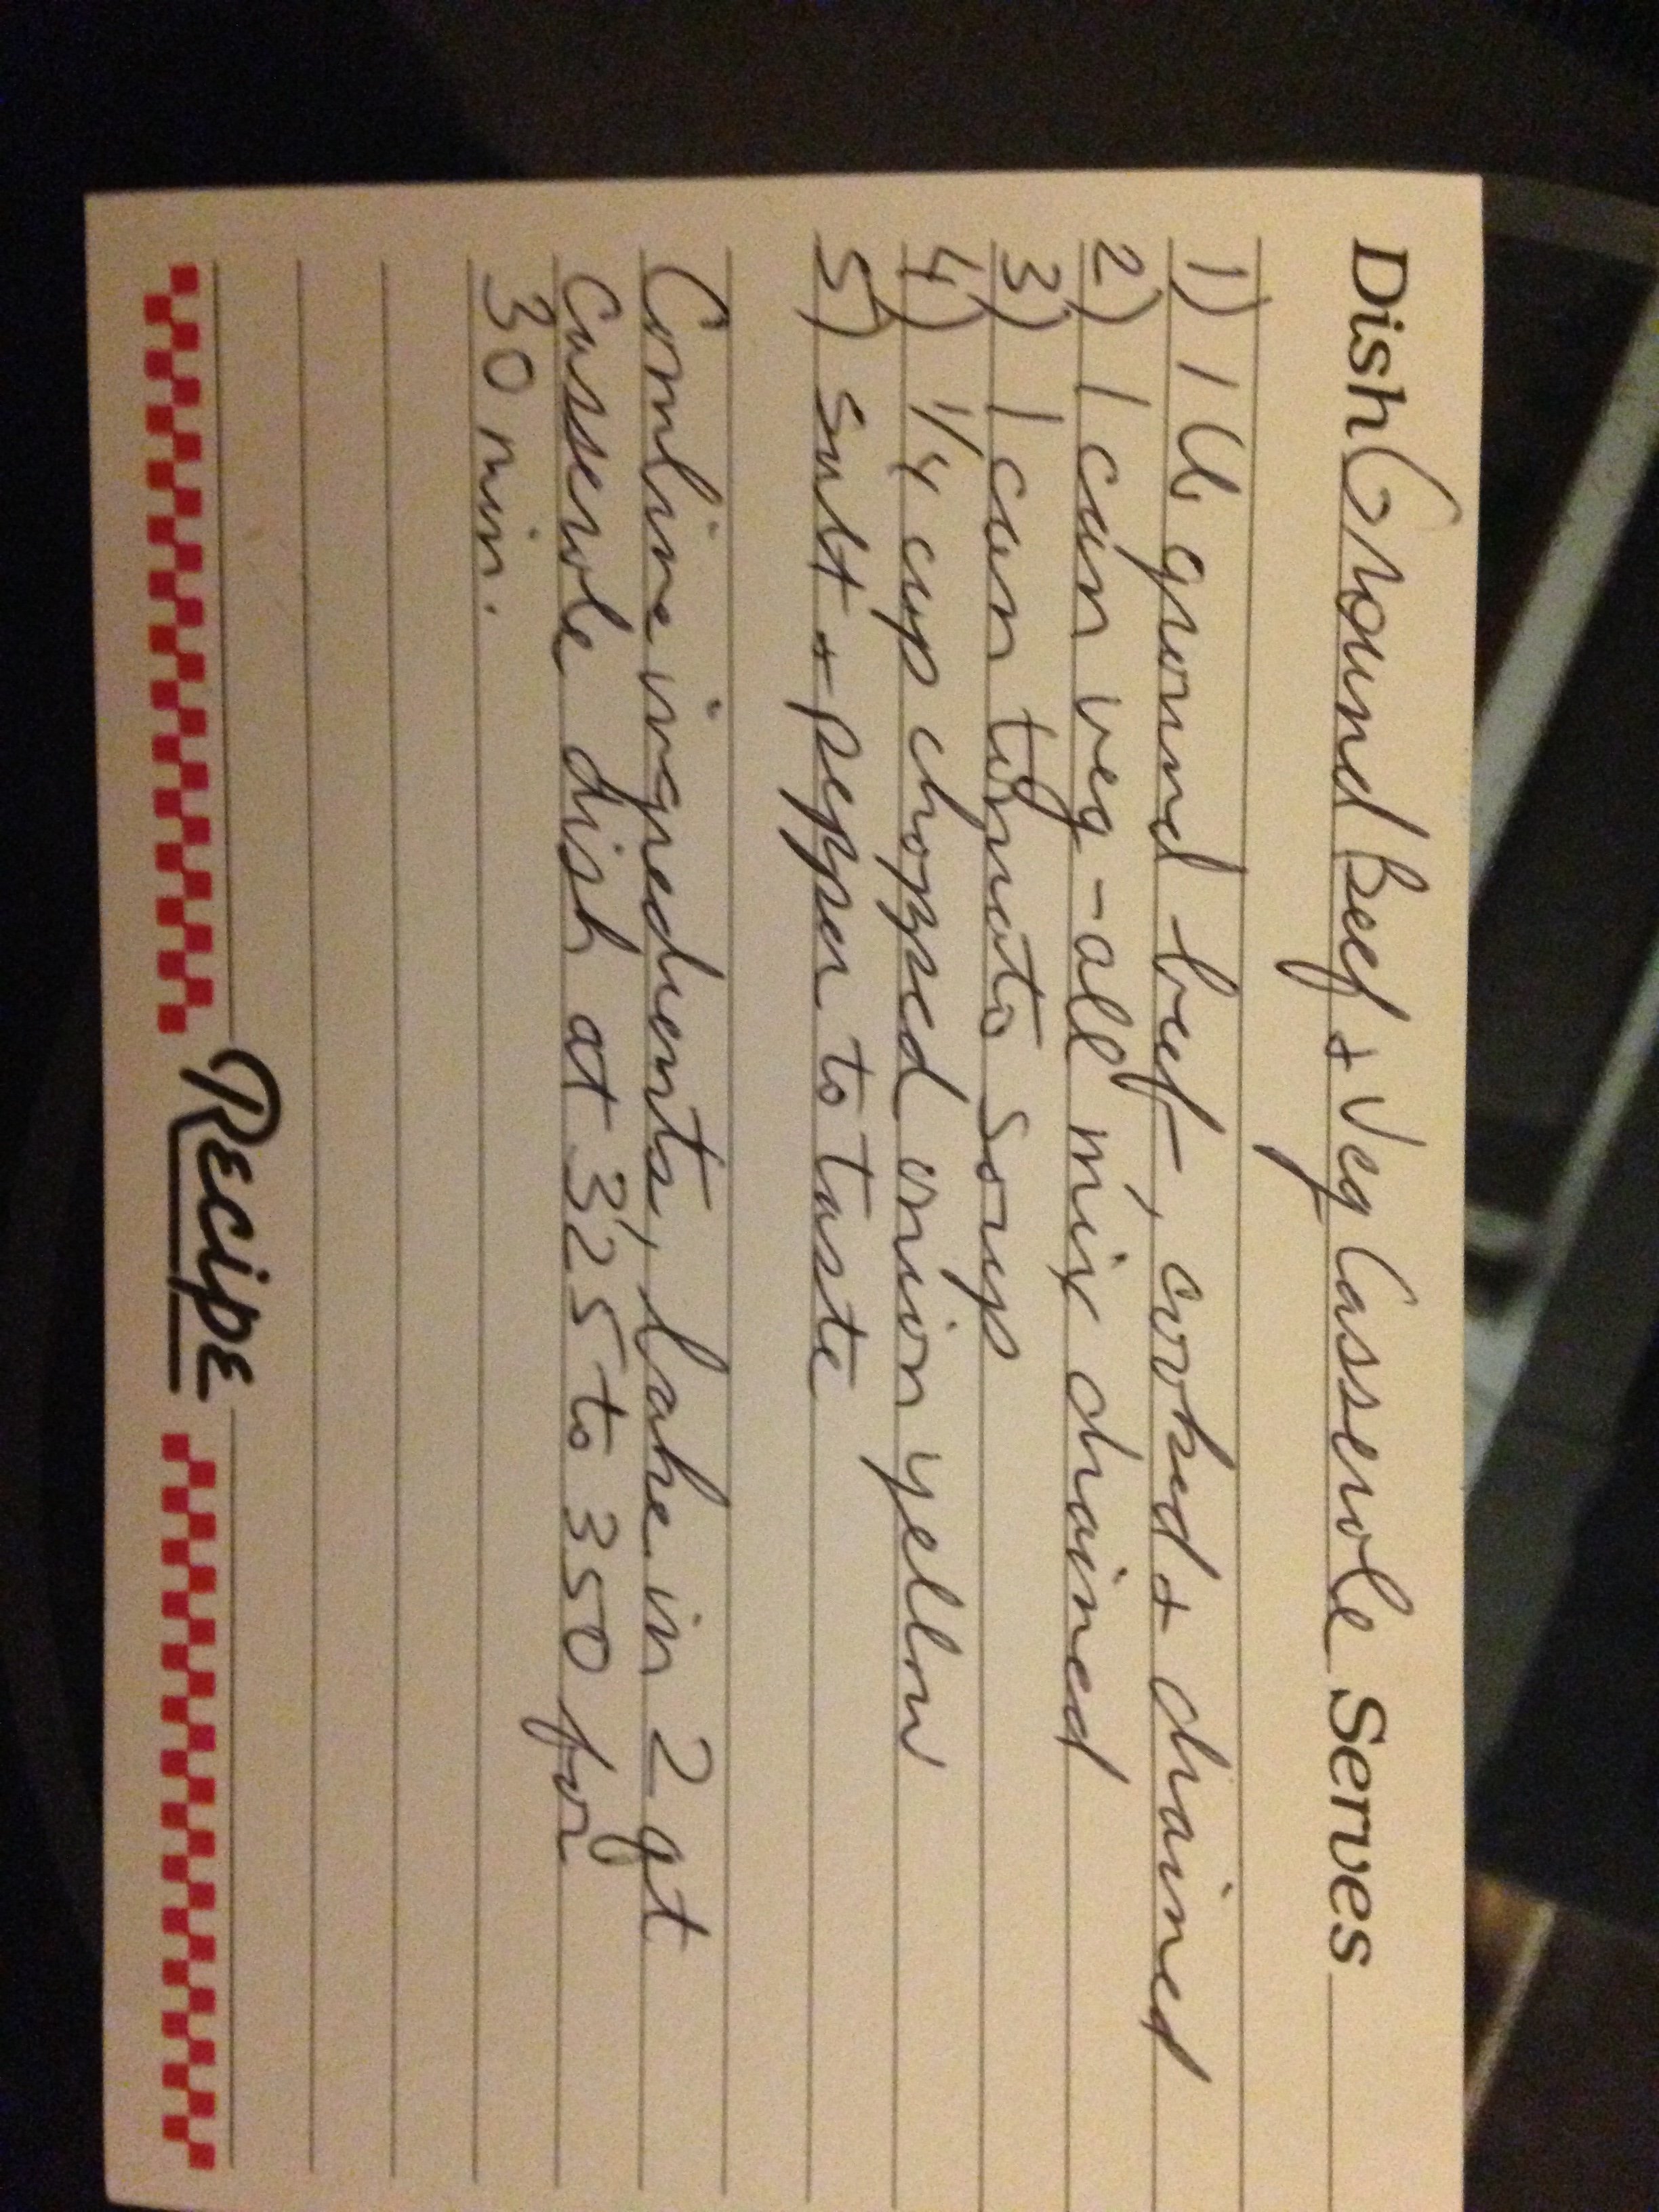 Dish Ground Beef + Veg Casserole Serves
1) 1 lb ground beef, cooked + drained
2) 1 can veg-all mix drained
3) 1 can tomato soup
4) 1/4 cup chopped onion yellow
5) salt + pepper to taste
Combine ingredients, bake in 2 qt
casserole dish at 325 to 350 for
30 min.
Recipe